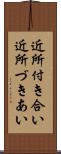 近所付き合い
近所づきあい